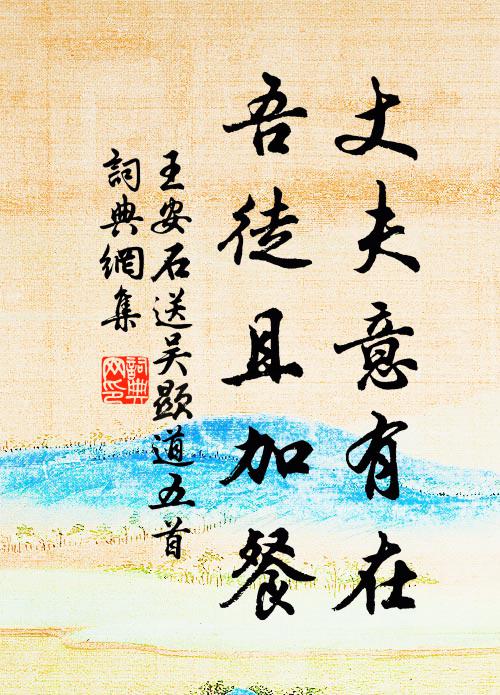 丈夫意有在
吾徒且加餐
王安石送吴顯道五首
詞典網集
詞典
网印